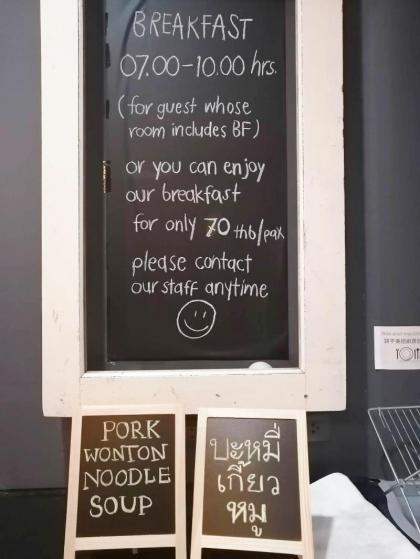 BREAKFAST
07.00-10.00 hrs.
(for guest whose
room includes BF)
or you can enjoy
our breakfast
for only 70 thb/pax
please contact
our staff anytime
PORK
WONTON
NOODLE
SOUP
บะหมี่
เกี๊ยว
หมู